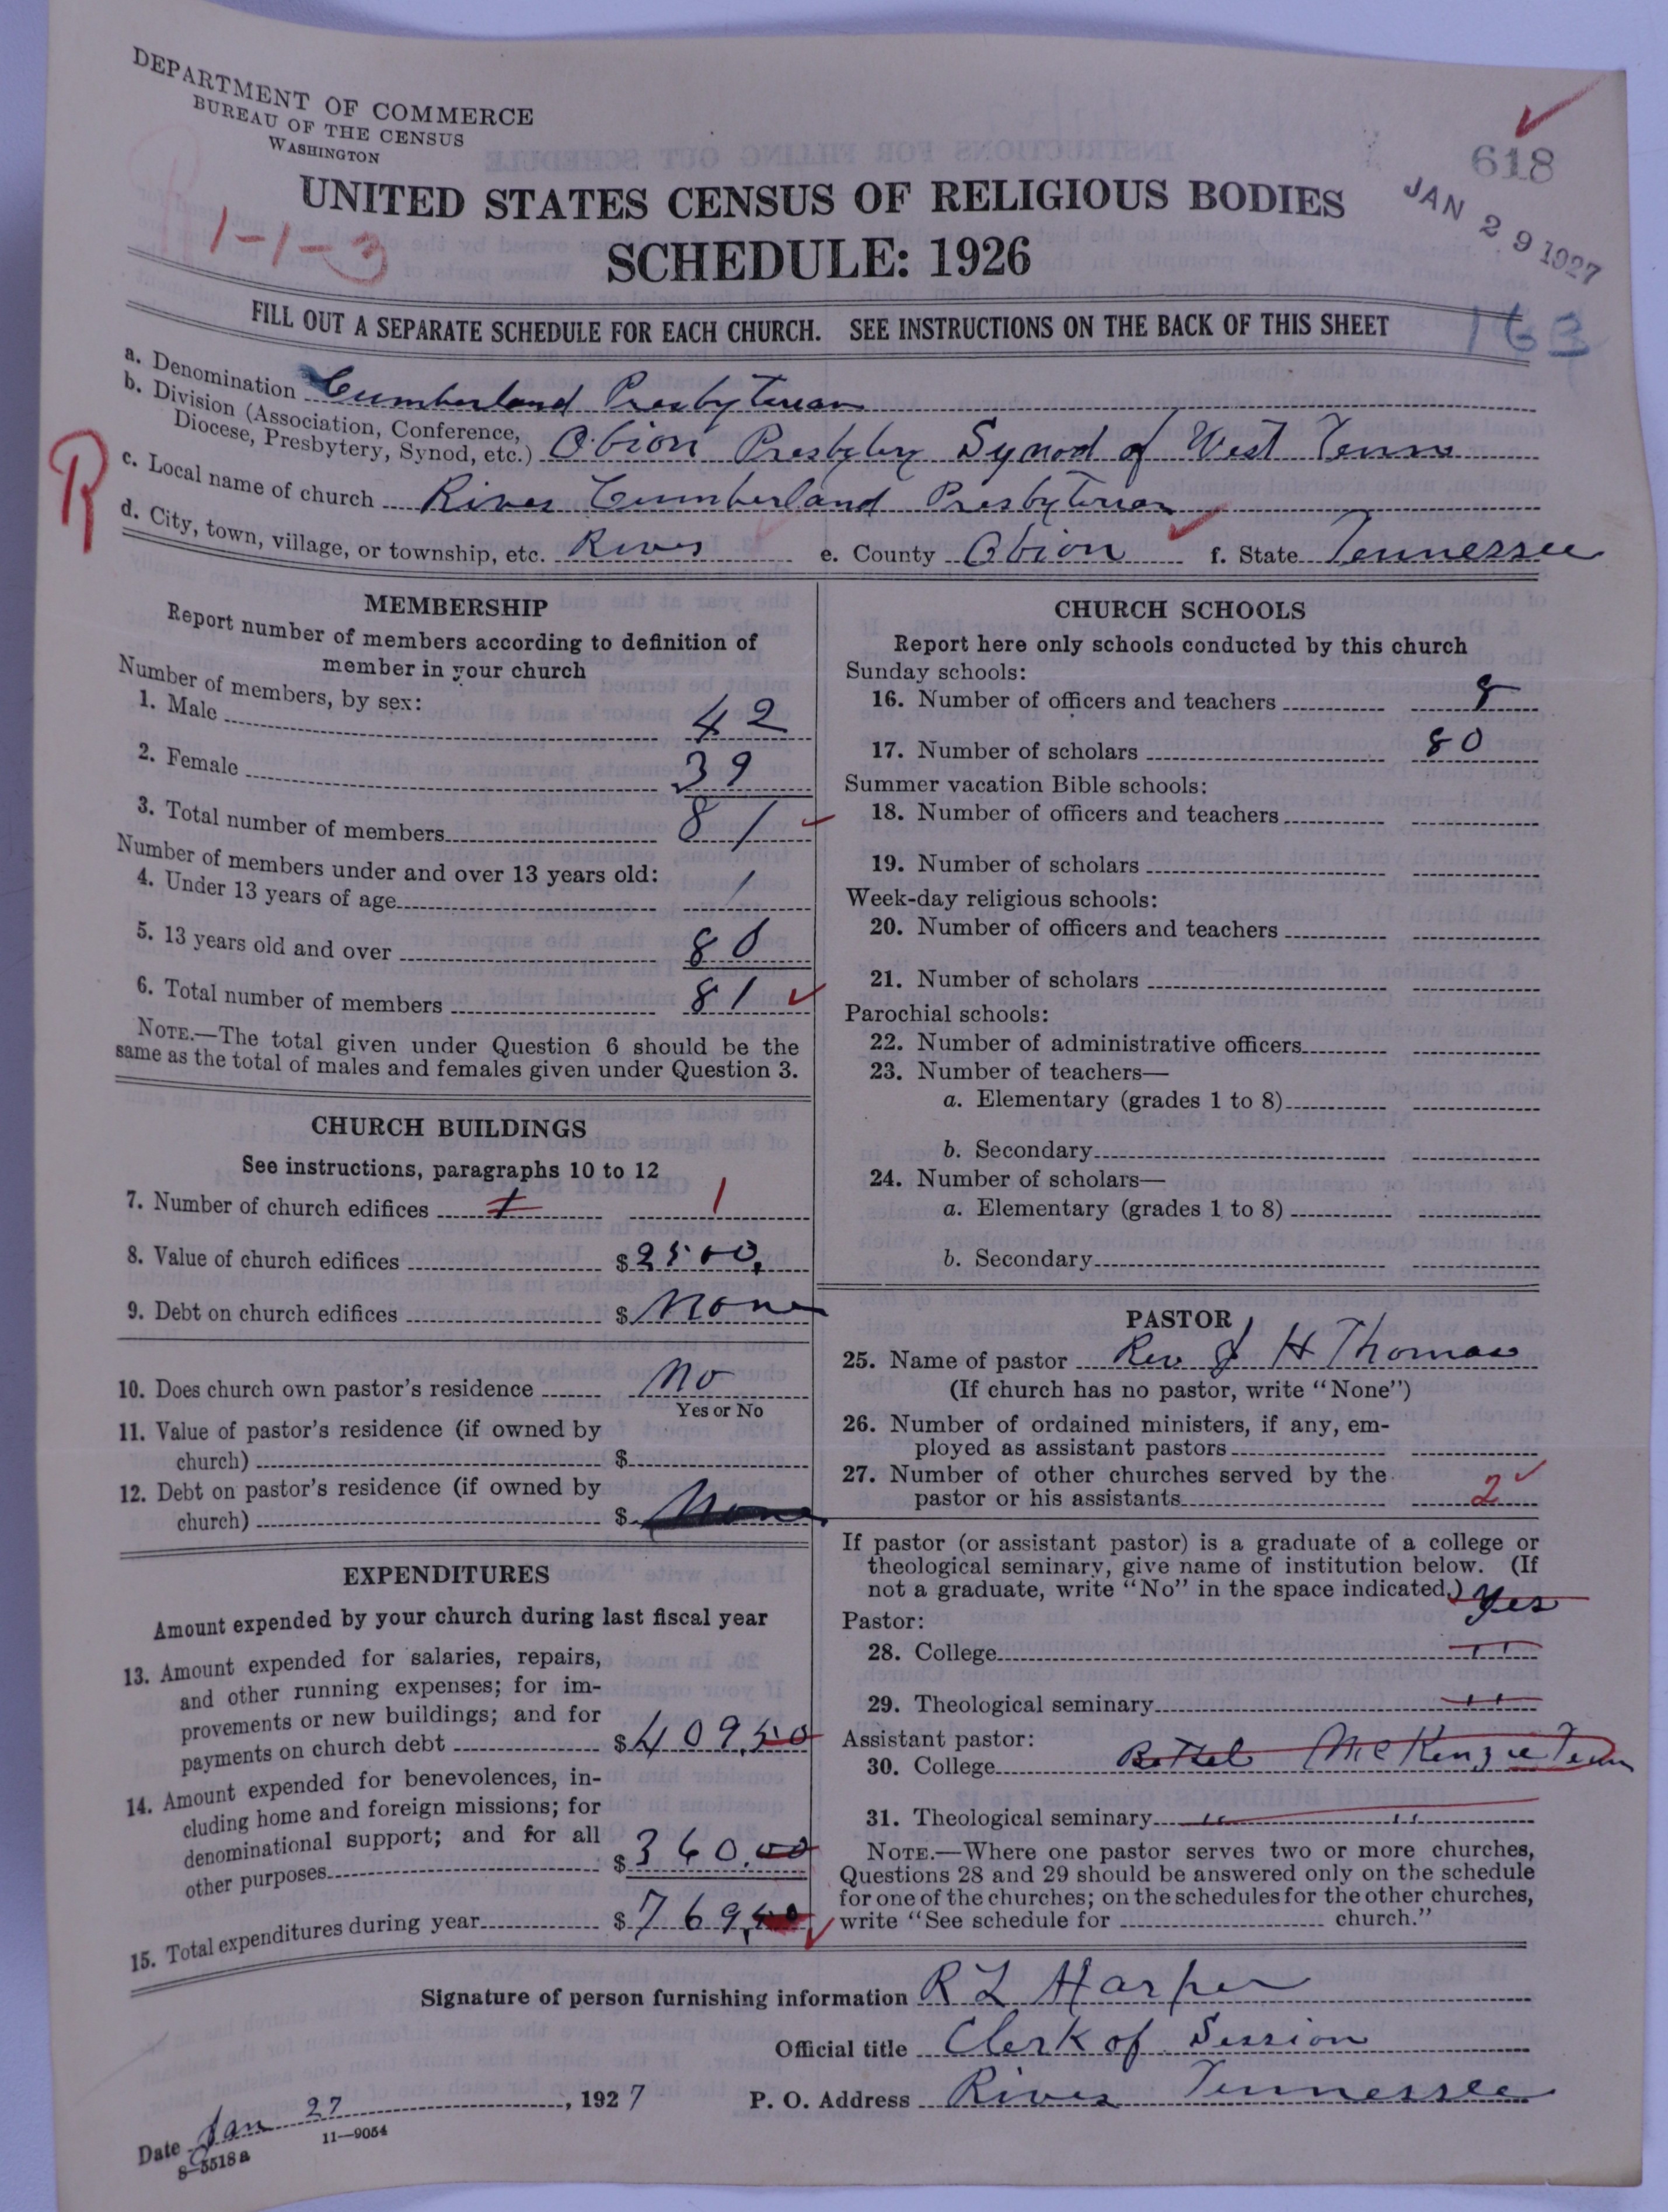 DEPARTMENT OF COMMERCE
BUREAU OF THE CENSUS
WASHINGTON
618
UNITED STATES CENSUS OF RELIGIOUS BODIES
JAN 29 1927
1-1-3
SCHEDULE: 1926
FILL OUT A SEPARATE SCHEDULE FOR EACH CHURCH. SEE INSTRUCTIONS ON THE BACK OF THIS SHEET
163
a. Denomination Cumberland Presbyterian
b. Division (Association, Conference,
Diocese, Presbytery, Synod, etc.) Obion Presbytery Synod of West Tenn
R
c. Local name of church Rives Cumberland Presbyterian
d. City, town, village, or township, etc. Rives e. County Obion f. State Tennessee
MEMBERSHIP
Report number of members according to definition of
member in your church
Number of members, by sex:
1. Male 42
2. Female 39
3. Total number of members 81
Number of members under and over 13 years old:
4. Under 13 years of age 1
5. 13 years old and over 80
6. Total number of members 81
NOTE.—The total given under Question 6 should be the
same as the total of males and females given under Question 3.
CHURCH BUILDINGS
See instructions, paragraphs 10 to 12
7. Number of church edifices 1 1
8. Value of church edifices $2500.
9. Debt on church edifices $ None
10. Does church own pastor's residence No
Yes or No
11. Value of pastor's residence (if owned by
church) $
12. Debt on pastor's residence (if owned by
church) $ None
EXPENDITURES
Amount expended by your church during last fiscal year
13. Amount expended for salaries, repairs,
and other running expenses; for im-
provements or new buildings; and for
payments on church debt $409.50
14. Amount expended for benevolences, in-
cluding home and foreign missions; for
denominational support; and for all
other purposes $360.00
15. Total expenditures during year $769.50
CHURCH SCHOOLS
Report here only schools conducted by this church
Sunday schools:
16. Number of officers and teachers 8
17. Number of scholars 80
Summer vacation Bible schools:
18. Number of officers and teachers
19. Number of scholars
Week-day religious schools:
20. Number of officers and teachers
21. Number of scholars
Parochial schools:
22. Number of administrative officers
23. Number of teachers—
a. Elementary (grades 1 to 8)
b. Secondary
24. Number of scholars—
a. Elementary (grades 1 to 8)
b. Secondary
PASTOR
25. Name of pastor Rev J H Thomas
(If church has no pastor, write "None")
26. Number of ordained ministers, if any, em-
ployed as assistant pastors
27. Number of other churches served by the
pastor or his assistants 2
If pastor (or assistant pastor) is a graduate of a college or
theological seminary, give name of institution below. (If
not a graduate, write "No" in the space indicated.) Yes
Pastor:
28. College " "
29. Theological seminary " "
Assistant pastor:
30. College Bethel McKenzie Tenn
31. Theological seminary " "
NOTE.—Where one pastor serves two or more churches,
Questions 28 and 29 should be answered only on the schedule
for one of the churches; on the schedules for the other churches,
write "See schedule for church."
Signature of person furnishing information R L Harper
Official title Clerk of Session
Date Jan 27, 1927 P. O. Address Rives Tennessee
8-5518a 11-9054